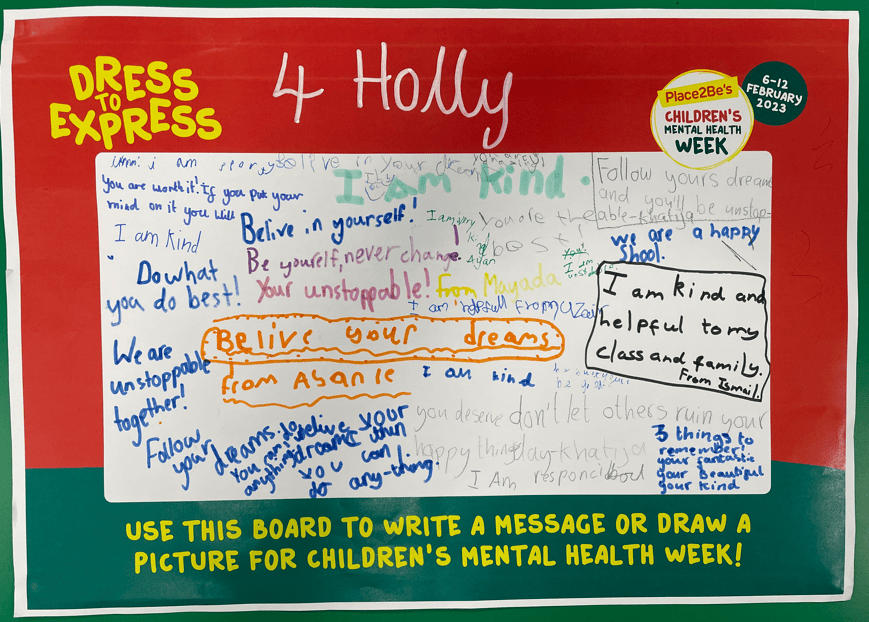 DRESS
TO
EXPRESS
4 Holly
6-12
FEBRUARY
2023
Place2Be's
CHILDREN'S
MENTAL HEALTH
WEEK
i am
live in your
You are worth it! If you put your
mind on it you will
I am kind
I am kind.
Follow yours dream
and you'll be unstop-
able-khatija
Belive in yourself!
I am very
Ayan
You are the
best!
we are a happy
shool.
Be yourself, never change!
Your unstoppable!
from Mayada
Do what
you do best!
I am helpfull from Uzair
I am kind and
helpful to my
class and family.
From Ismail.
Belive your dreams.
from Asante
I am kind
We are
unstoppable
together!
you deserve
happy things
don't let others ruin your
day-khatija
I Am
Follow
your dreams.
You can do
anything!
belive your
dreams then
you can
do any-thing.
3 things to
remember!
your fantastic
your beautiful
your kind
USE THIS BOARD TO WRITE A MESSAGE OR DRAW A
PICTURE FOR CHILDREN'S MENTAL HEALTH WEEK!